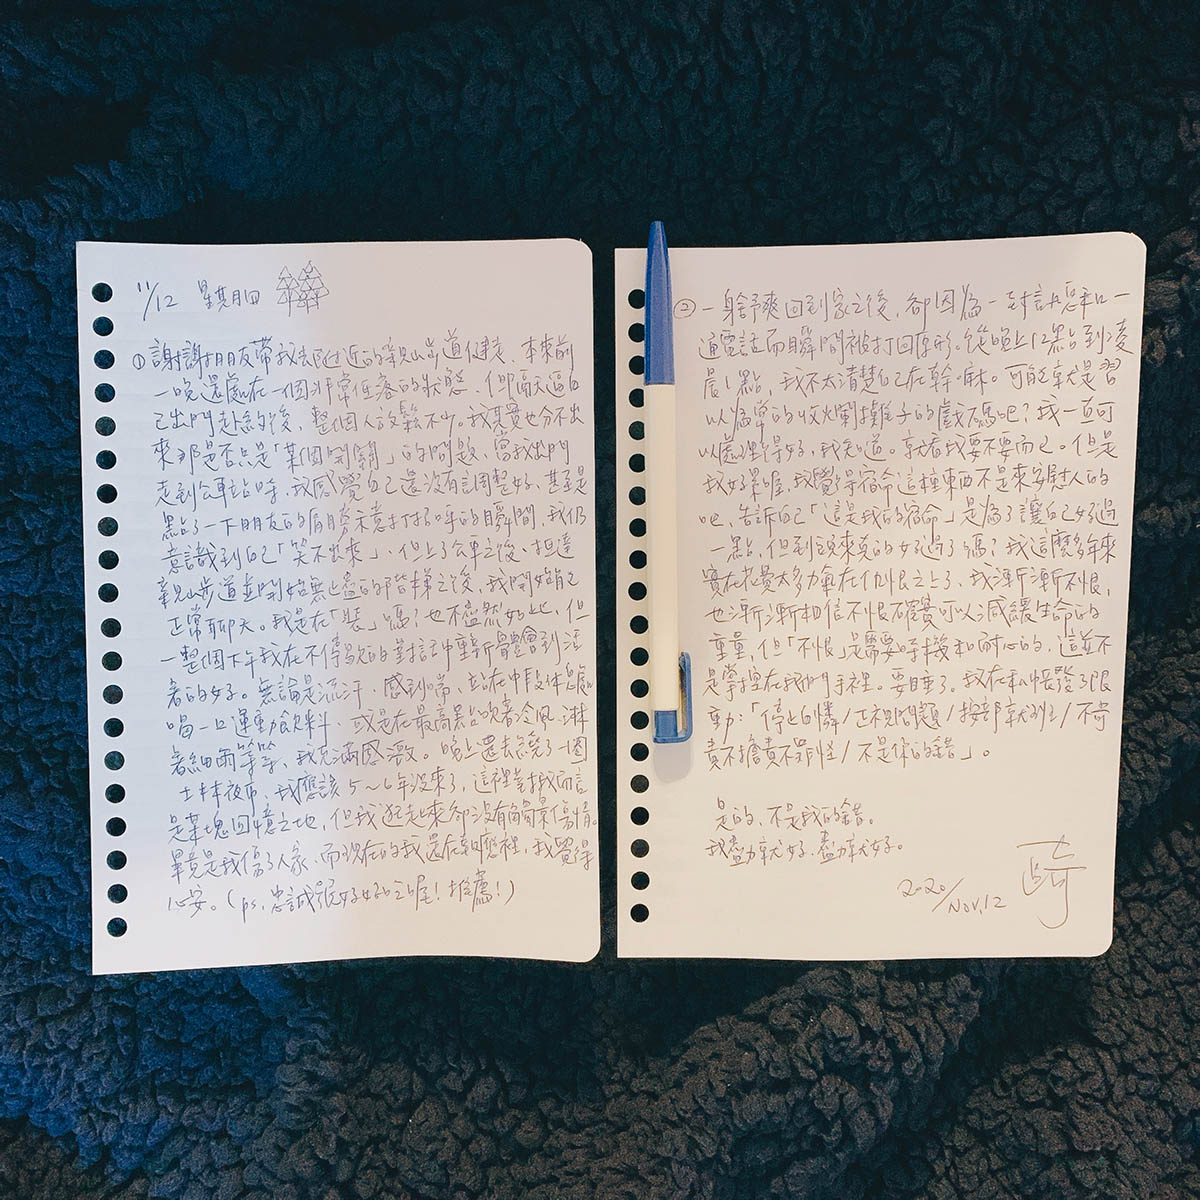 11/12 星期四
① 謝謝朋友帶我去附近的鸞山步道健走，本來前
一晚還處在一個非常低落的狀態，但隔天逼自
己出門赴約後，整個人放鬆不少。我其實也分不出
來那是否只是「某個開關」的問題，當我出門
走到公車站時，我感覺自己還沒有調整好，甚至是
點了一下朋友的肩膀示意打招呼的瞬間，我仍
意識到自己「笑不出來」，但上了公車之後、抵達
步道並開始無止盡的階梯之後，我開始能
正常聊天。我是在「裝」嗎？也不盡然如此，但
一整個下午我在不停歇的對話中重新體會到活
著的好。無論是流汗、感到喘、站在中段休息處
喝一口運動飲料、或是在最高點吹著冷風、淋
著細雨等等，我充滿感激。晚上還去繞了一圈
士林夜市，我應該5～6年沒來了，這裡對我而言
是某塊回憶之地，但我逛起來卻沒有觸景傷情。
畢竟是我傷了人家，而現在的我還在報應裡，我覺得
心安。（ps. 忠誠號好好吃喔！推薦！）
② 一身舒爽回到家之後，卻因為一封訊息和一
通電話而瞬間被打回原形。從晚上12點到凌
晨1點，我不太清楚自己在幹嘛。可能就是習
以為常的收爛攤子的戲碼吧？我一直可
以處理得好，我知道。就看我要不要而已。但是
我好累喔，我覺得宿命這種東西不是來安慰人的
吧，告訴自己「這是我的宿命」是為了讓自己好過
一點，但到頭來真的好過了嗎？我這麼多年來
實在花費太多力氣在仇恨之上了。我漸漸不恨，
也漸漸相信不恨確實可以減緩生命的
重量，但「不恨」是需要時機和耐心的，這並不
是掌控在我們手裡。要睡了。我在私帳發了限
動：「停止自憐/正視問題/按部就班/不苛
責不擔責不罪怪/不是你的錯」。
是的，不是我的錯。
我盡力就好，盡力就好。
2020/Nov,12
琦